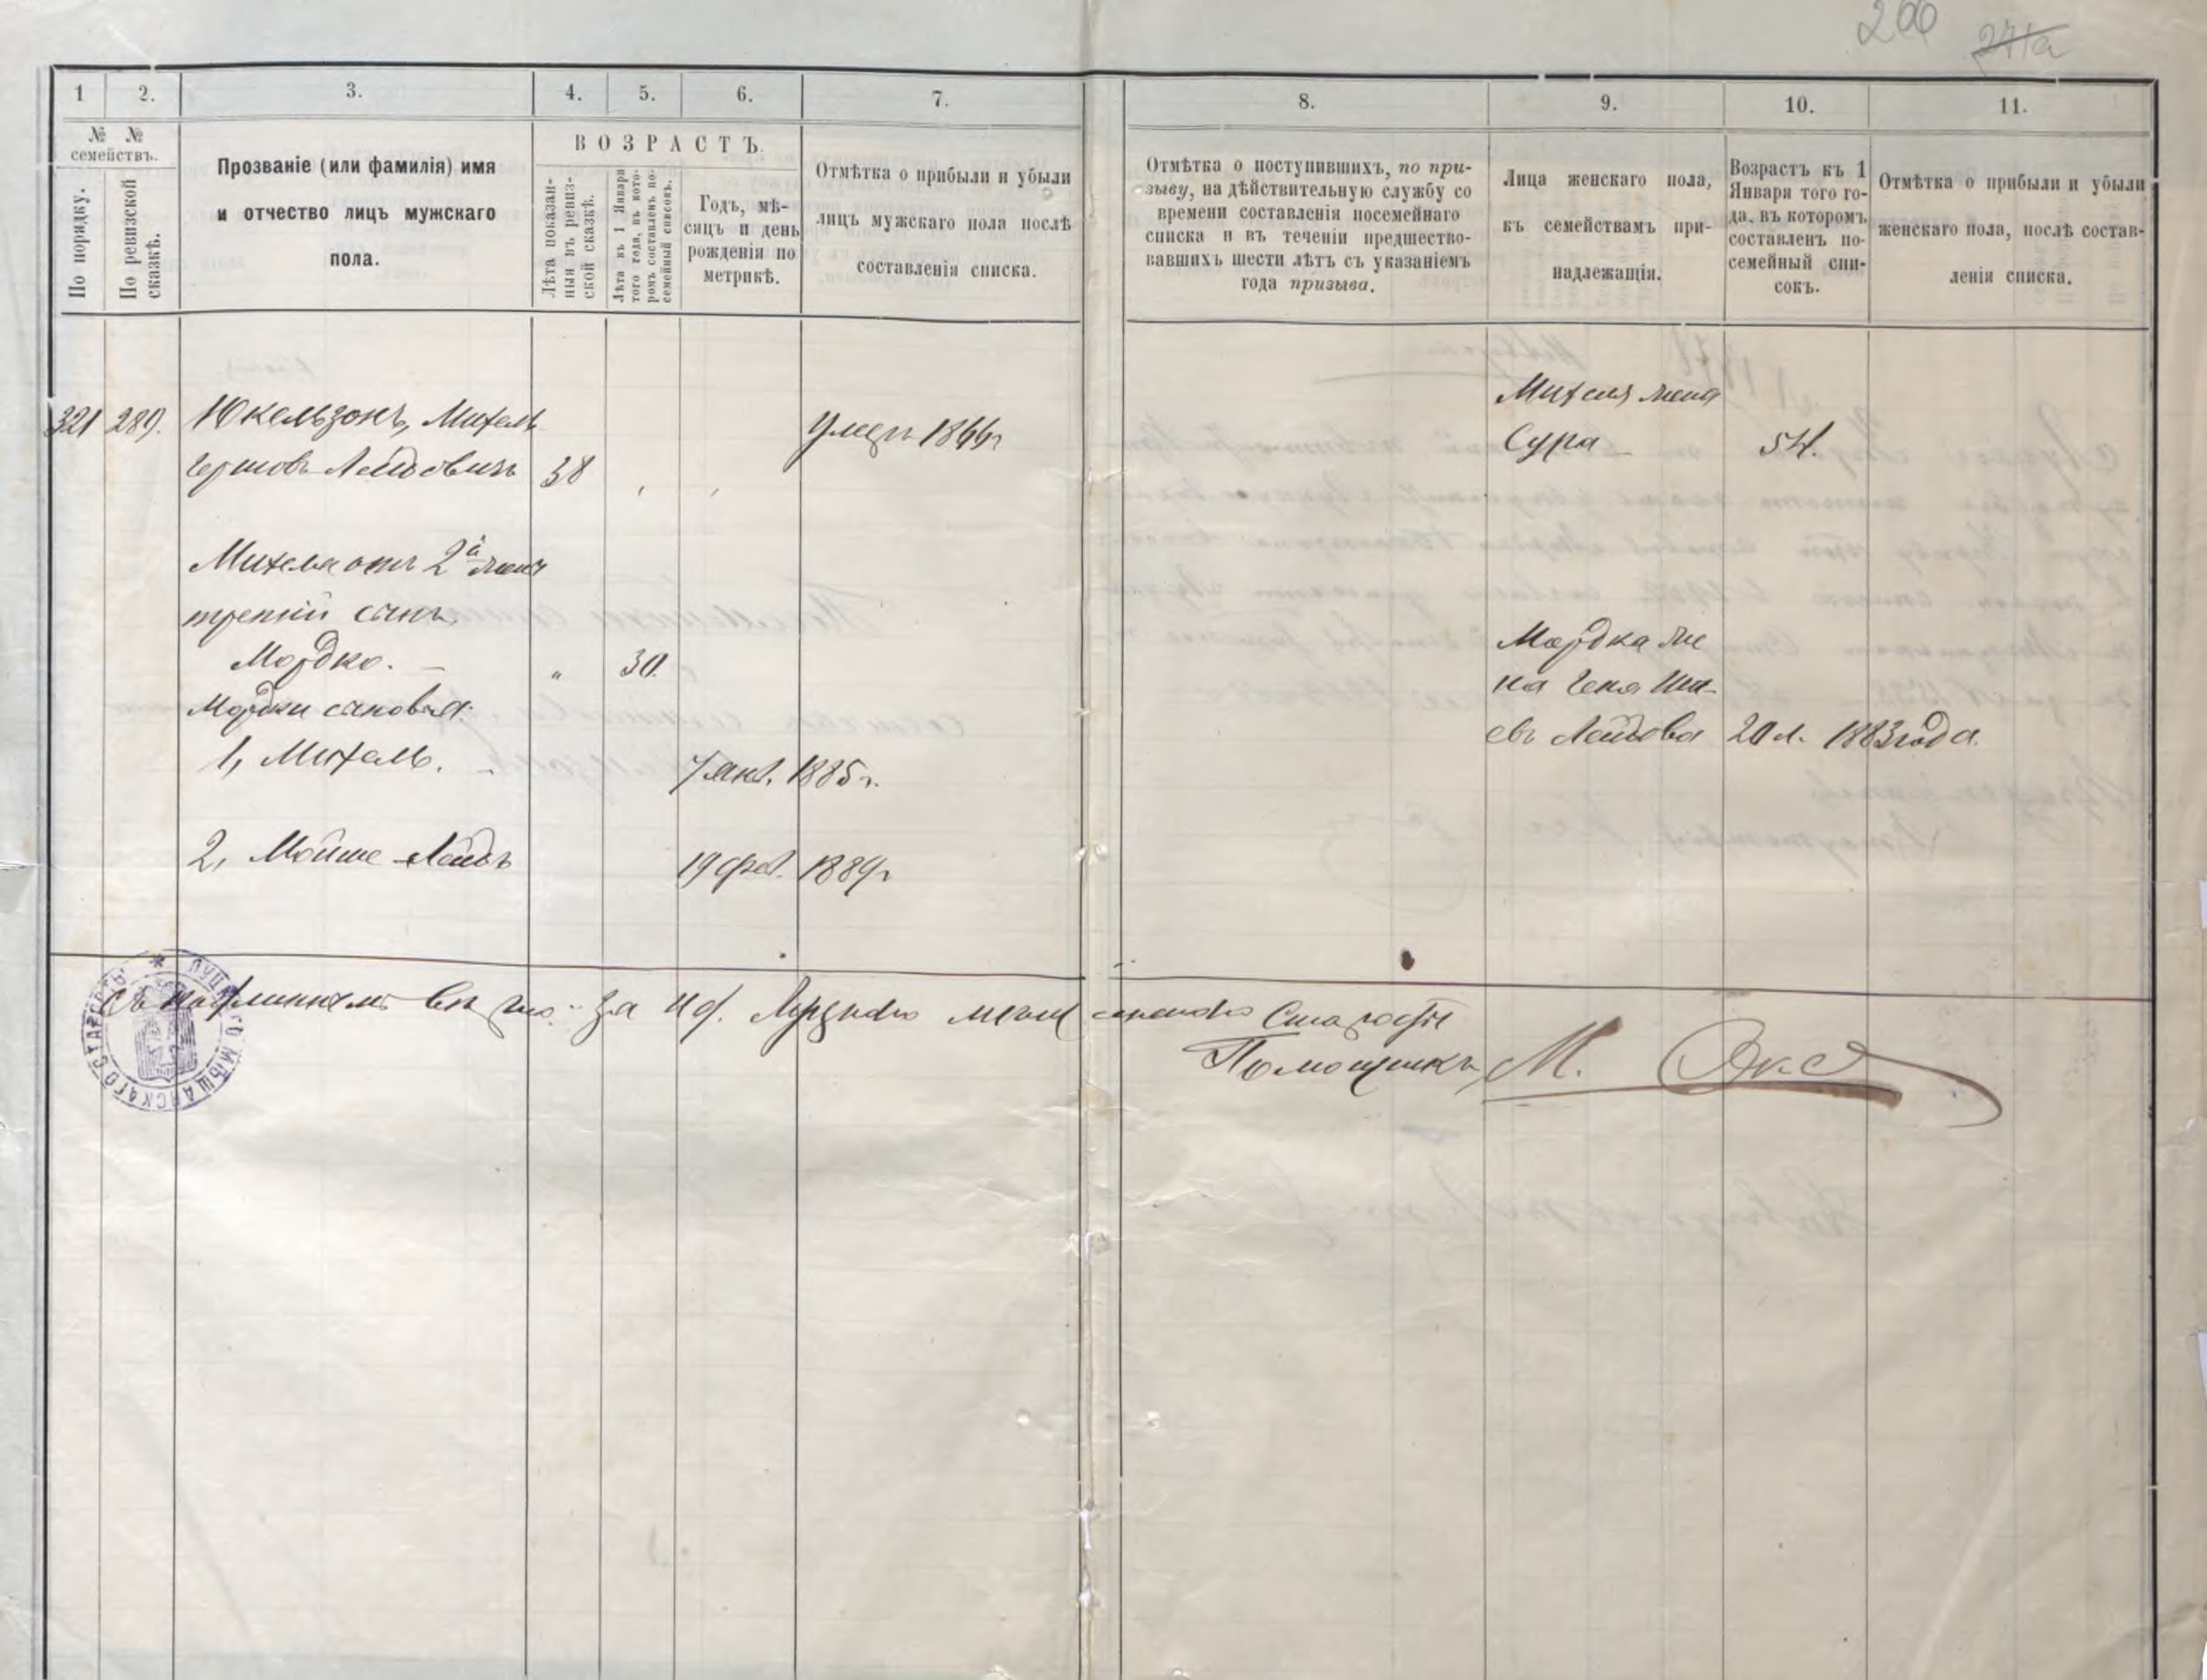 200
271а
1
2.
3.
4.
5.
6.
7.
8.
9.
10.
11.
№ №
семействъ.
По порядку.
По ревизской
сказкѣ.
Прозваніе (или фамилія) имя
и отчество лицъ мужскаго
пола.
ВОЗРАСТЪ.
Лѣта показан-
ныя въ ревиз-
ской сказкѣ.
Лѣта къ 1 Января
того года, въ кото-
ромъ составленъ по-
семейный списокъ.
Годъ, мѣ-
сяцъ и день
рожденія по
метрикѣ.
Отмѣтка о прибыли и убыли
лицъ мужскаго пола послѣ
составленія списка.
Отмѣтка о поступившихъ, по при-
зыву, на дѣйствительную службу со
времени составленія посемейнаго
списка и въ теченіи предшество-
вавшихъ шести лѣтъ съ указаніемъ
года призыва.
Лица женскаго пола,
къ семействамъ при-
надлежащія.
Возрастъ къ 1
Января того го-
да, въ которомъ
составленъ по-
семейный спи-
сокъ.
Отмѣтка о прибыли и убыли
женскаго пола, послѣ состав-
ленія списка.
Михеля жена
321 289. Юкельзонъ, Михель Умеръ 1866 г Сура 54.
Гершовъ Лейбовичъ 38
Михеля отъ 2й жены
третій сынъ
Мордко. " 30. Мордка же
Мордки сыновья: на Геня Ша-
евъ Лейбова 20 л. 1883 года.
1, Михель. 7 янв. 1885 г.
2, Мойше Лейбъ 19 фев. 1889 г
Съ подлиннымъ вѣрно: за Луцкаго мѣщанскаго Старосты
Помощникъ М.
ЛУЦКАГО МѢЩАНСКАГО СТАРОСТЫ